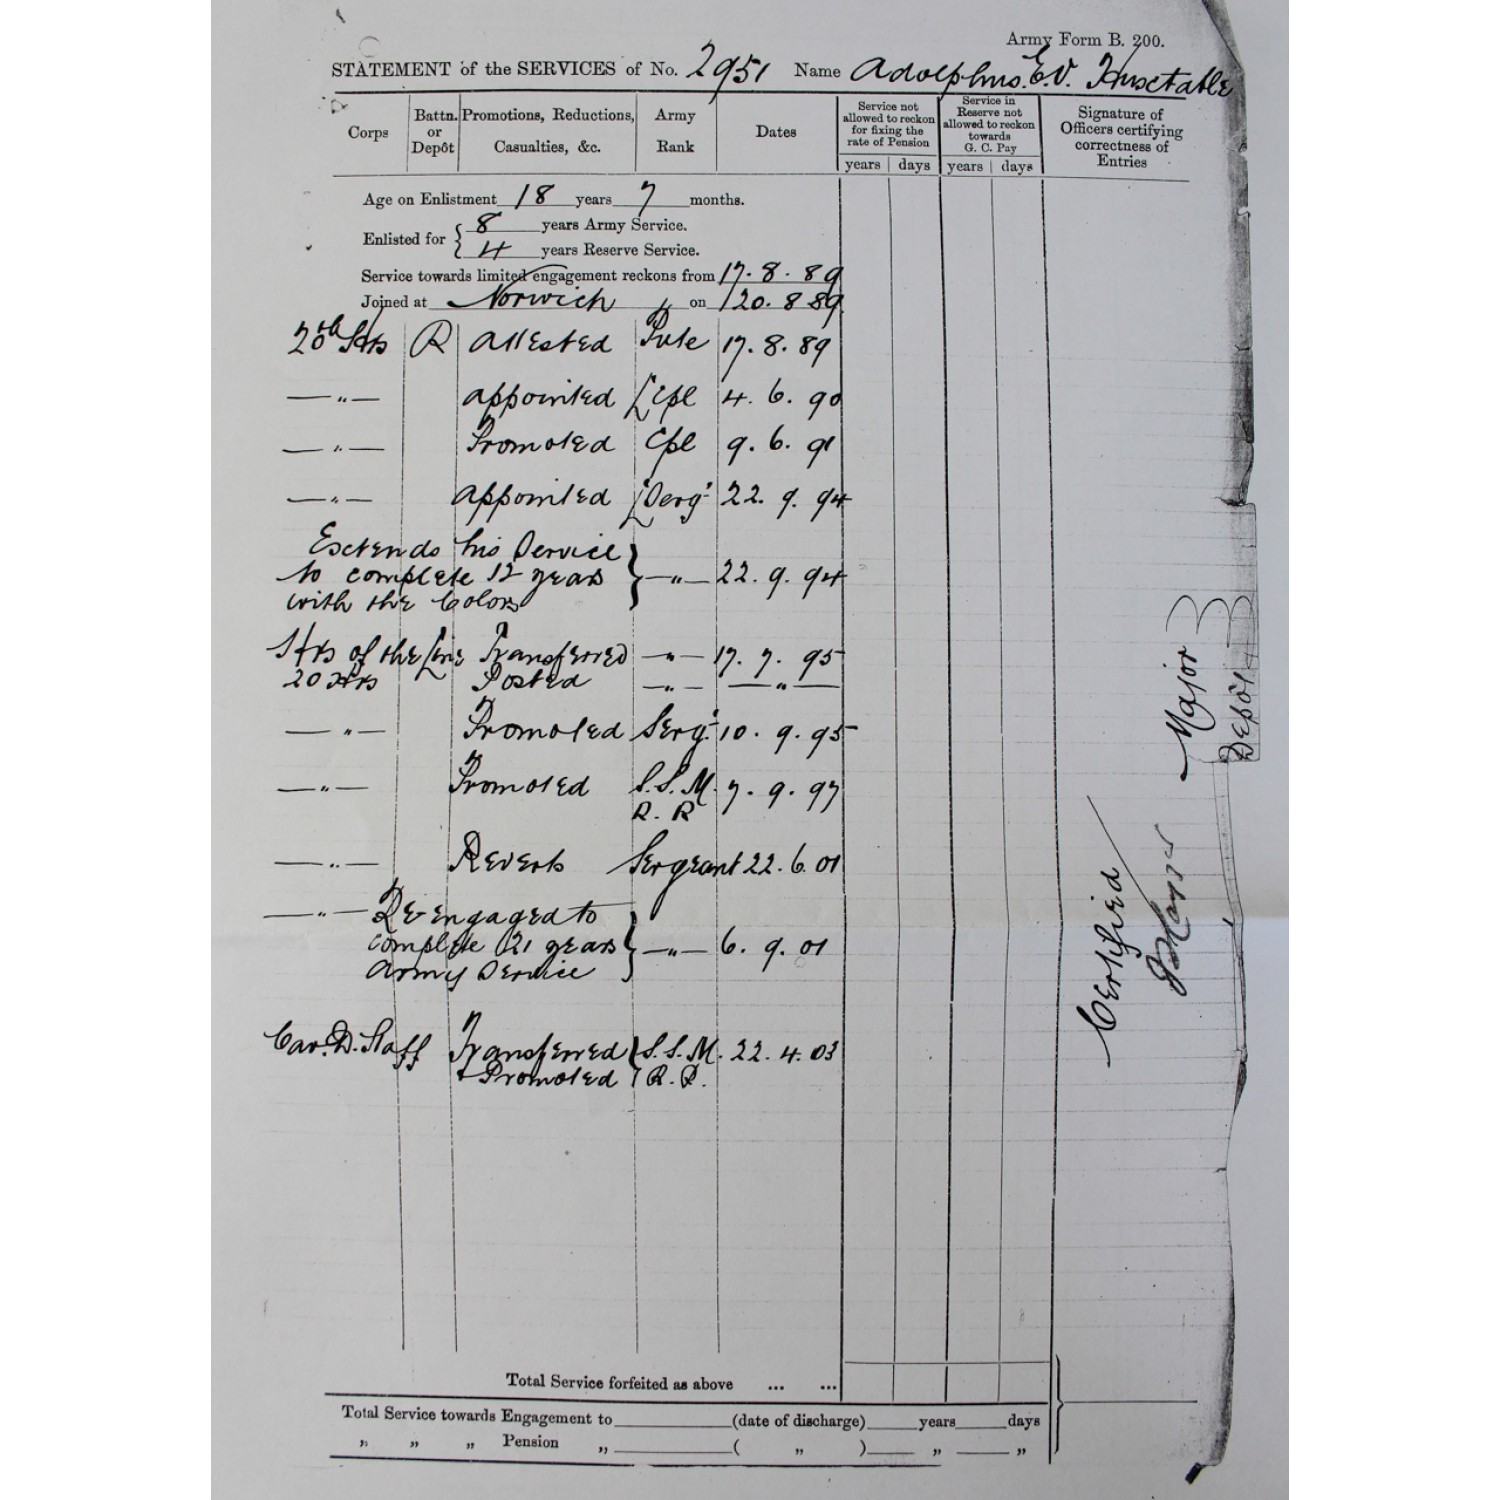 Army Form B. 200.
STATEMENT of the SERVICES of No. 2951 Name Adolphus. E.V. Huxtable
Corps
Battn. or Depôt
Promotions, Reductions, Casualties, &c.
Army Rank
Dates
Service not allowed to reckon for fixing the rate of Pension
Service in Reserve not allowed to reckon towards G. C. Pay
Signature of Officers certifying correctness of Entries
years days years days
Age on Enlistment 18 years 7 months.
Enlisted for { 8 years Army Service.
4 years Reserve Service.
Service towards limited engagement reckons from 17. 8. 89
Joined at Norwich on 20. 8 89
20th Hrs R Attested Pvte 17. 8. 89
— " — appointed LCpl 4. 6. 90
— " — Promoted Cpl 9. 6. 91
— " — appointed LSergt 22. 9. 94
Extends his Service
to complete 12 years } — " — 22. 9. 94
with the Colors
Hrs of the Line Transferred — " — 17. 7. 95
20 Hrs Posted — " — — " —
— " — Promoted Sergt 10. 9. 95
— " — Promoted S.S.M. 7. 9. 97
R. R
— " — Reverts Sergeant 22. 6. 01
— " — Re-engaged to
complete 21 years } — " — 6. 9. 01
Army Service
Cav. D. Staff Transferred S.S.M. 22. 4. 03
+ Promoted R. R.
Certified
Major
Depôt
Total Service forfeited as above ... ...
Total Service towards Engagement to (date of discharge) years days
" " " Pension " ( " ) " "